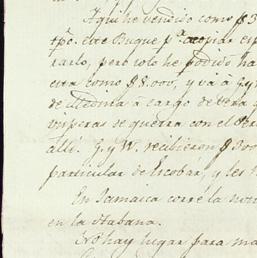 Aqui he vendido como $3
tpo. este Buque pa. acopiar esp
rarlo, pero solo he podido ha
esta como $8.000, y vá á G. y
de Medina á cargo de Vera y
visperas de guerra con el Per
allí. G. y W. recibieron $300
particular de Escobar, y les h
En Jamaica corré la not
en la Habana.
No hay lugar para ma